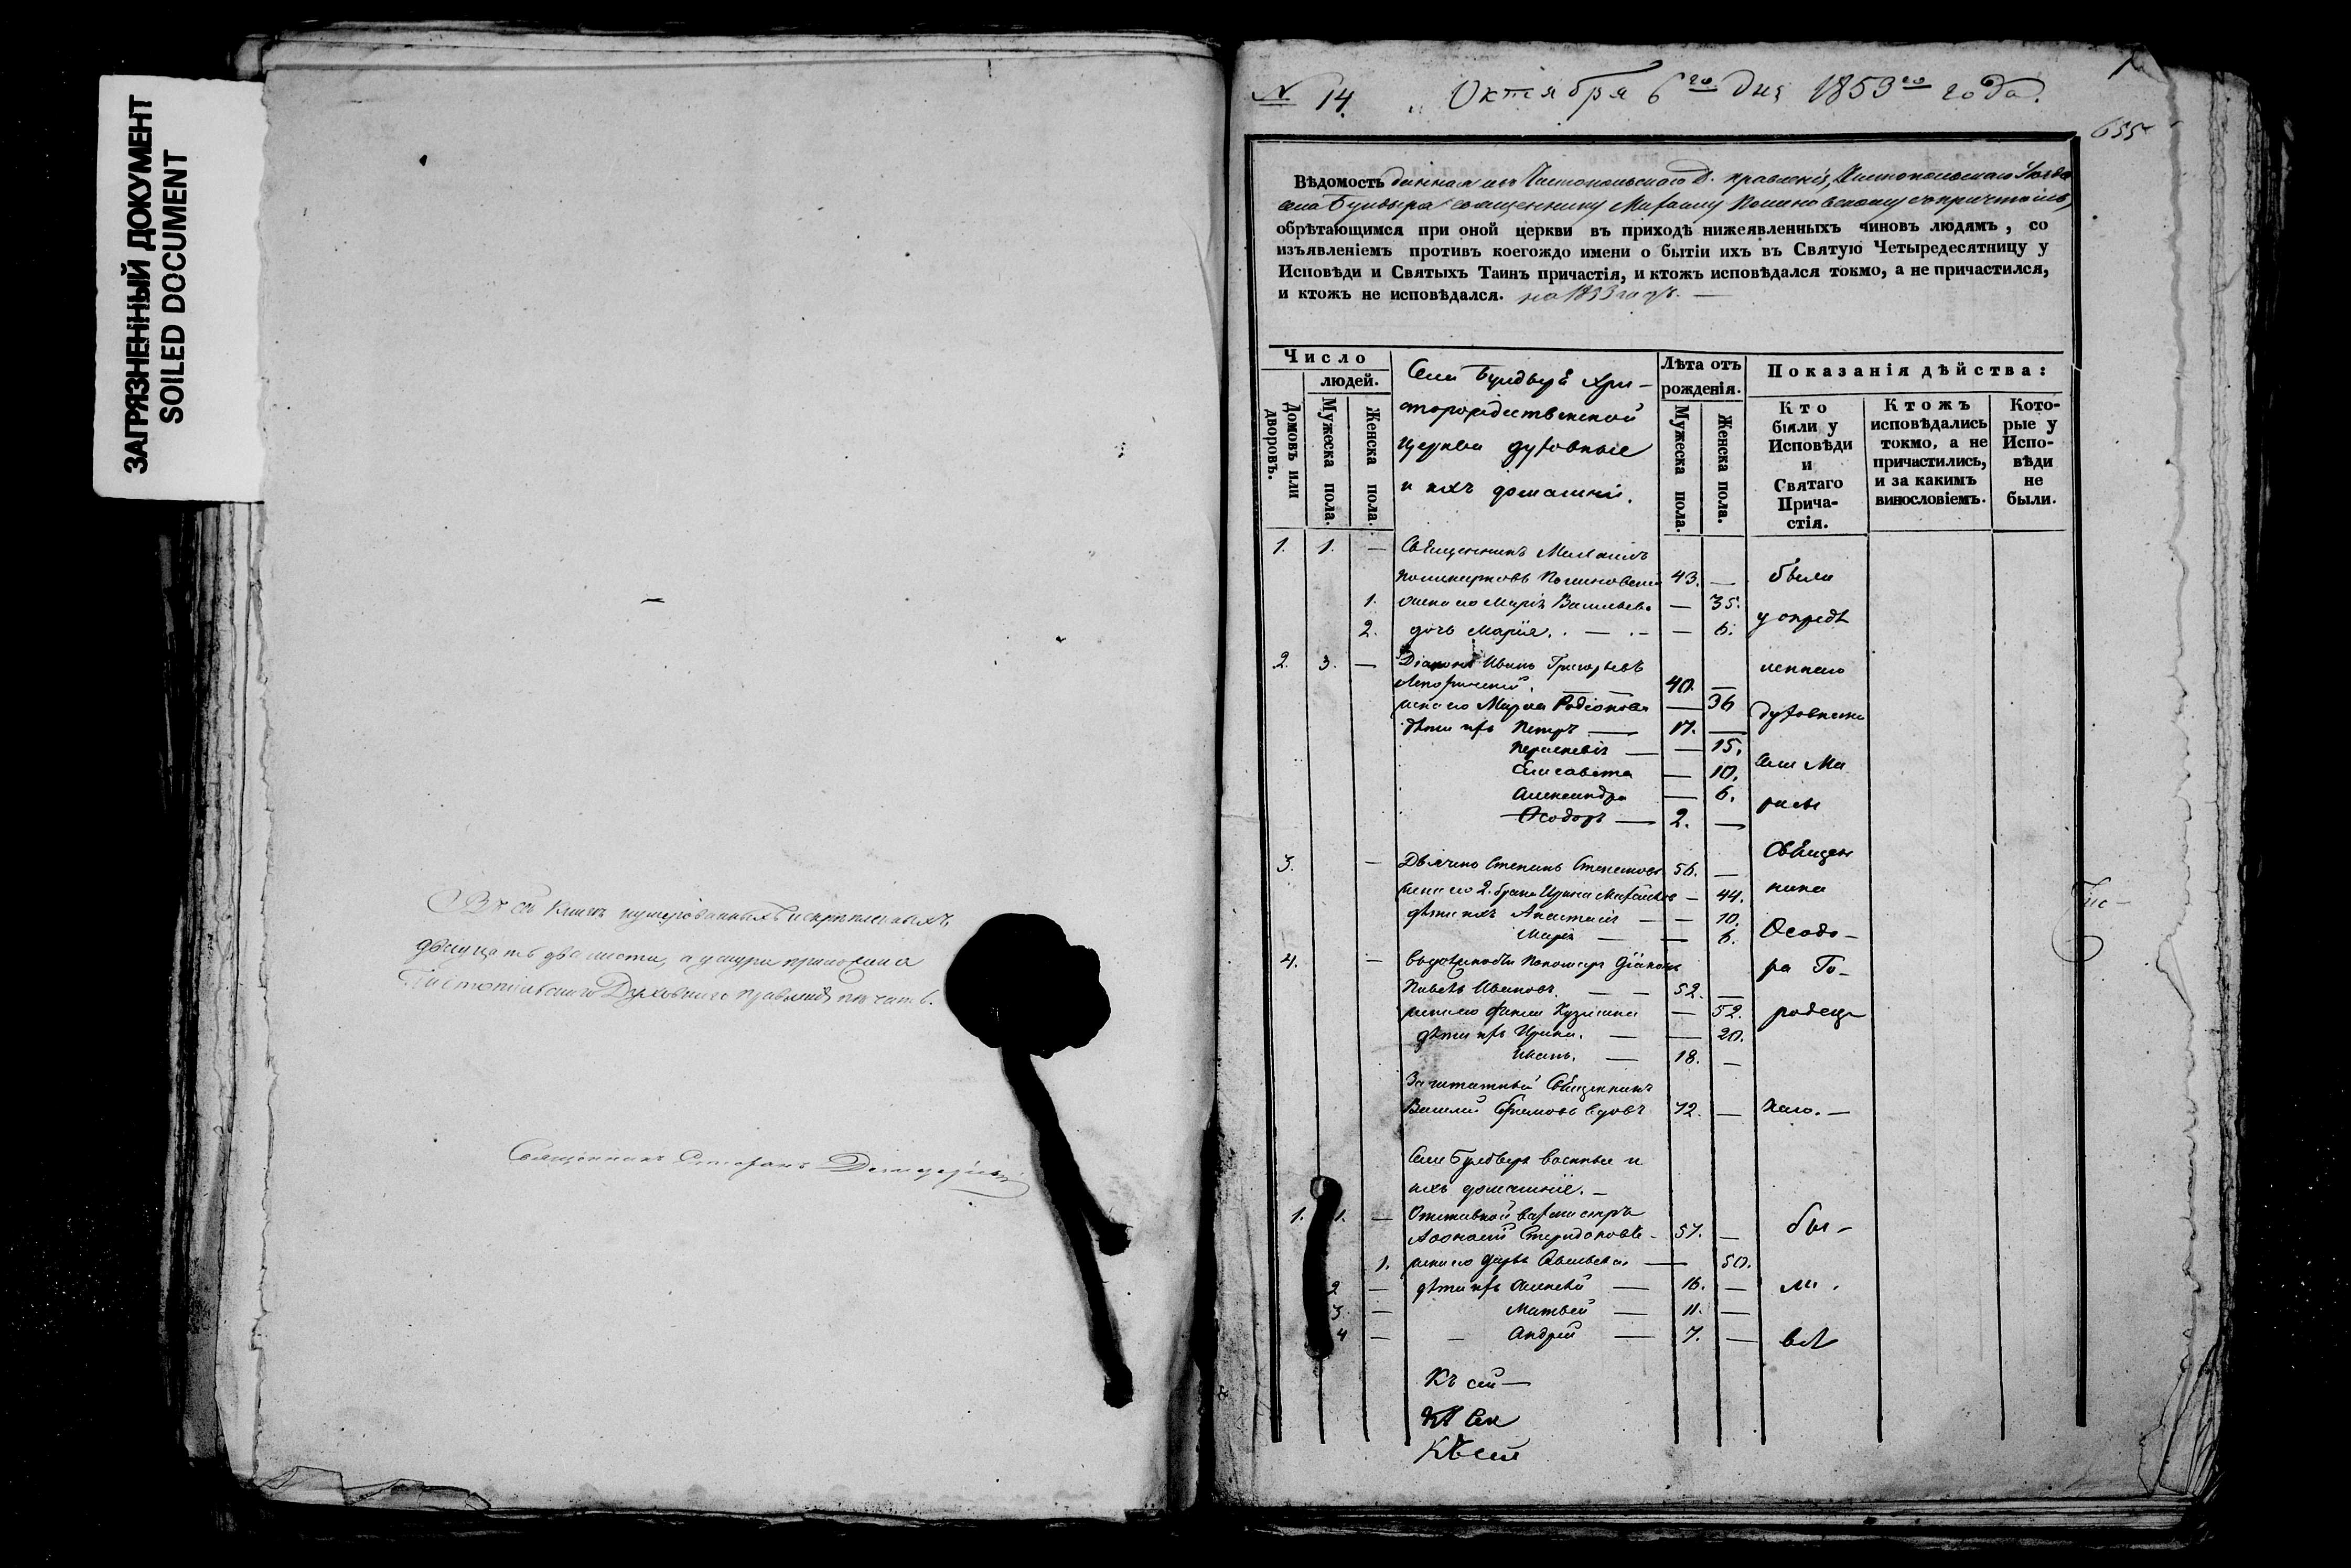 ЗАГРЯЗНЕННЫЙ ДОКУМЕНТ
SOILED DOCUMENT
двадцать два листа, а у шнура приложена
Чистопольскаго Духовнаго Правленія печать.
Священникъ Стефанъ
№ 14. Октября 6го дня 1853го года.
655
Вѣдомость данная изъ Чистопольскаго Д. правленія, Чистопольскаго Уѣзда
села Булдыра священнику Михаилу съ причтомъ,
обрѣтающимся при оной церкви въ приходѣ нижеявленныхъ чиновъ людямъ, со
изъявленіемъ противъ коегождо имени о бытіи ихъ въ Святую Четыредесятницу у
Исповѣди и Святыхъ Таинъ причастія, и ктожъ исповѣдался токмо, а не причастился,
и ктожъ не исповѣдался. на 1853 годъ. —
Число
людей.
Домовъ или дворовъ.
Мужеска пола.
Женска пола.
Села Булдыря Хри-
сторождественской
церкви духовные
и ихъ домашніи.
Лѣта отъ
рожденія.
Мужеска пола.
Женска пола.
Показанія дѣйства:
Кто
были у
Исповѣди
и
Святаго
Прича-
стія.
Ктожъ
исповѣдались
токмо, а не
причастились,
и за какимъ
винословіемъ.
Кото-
рые у
Испо-
вѣди
не
были.
1. 1. — Священникъ Михаилъ
43. — были
1. жена его Марія Васильева — 35.
2. дочь Марія. — — 6. у опредѣ
2. 3. — Діаконъ Иванъ Григорьевъ леннаго
40. —
жена его Марѳа Родіонова — 36
дѣти ихъ Петръ — 17. — духовника
Параскевія — — 15.
Елисавета — 10. села Ма
Александра — 6.
Ѳеодоръ — 2. —
Священ
3. — Дьячекъ Степанъ Степановъ 56. —
жена его 2. брака Ирина Михайлова — 44. ника
дѣти ихъ Анастасія — — 10.
Марія — — 6. Ѳеодо-
4. — Пономарь Діаконъ ра Го-
Павелъ Ивановъ — — 52. —
жена его Кузмина — 52. родец
дѣти ихъ Ирина. — — 20.
Иванъ. — 18. —
Заштатный Священникъ
Василій Ефимовъ вдовъ 72. — каго. —
Села Булдыря военные и
ихъ домашніе. —
1. 1. — Отставной вахмистръ
Аѳонасій Спиридоновъ - 57. — бы-
1. жена его Дарья — 50.
2 — дѣти ихъ Алексѣй — 16. — ли.
3 — Матвей — 11. —
4 — — Андрей — 7. —
Къ сей —
Къ сей